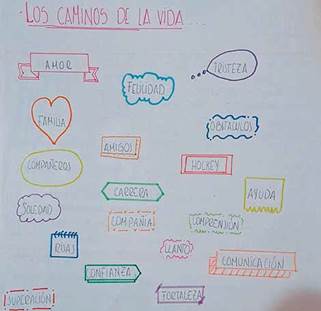 LOS CAMINOS DE LA VIDA...
AMOR
TRISTEZA
FELICIDAD
FAMILIA
OBSTACULOS
AMIGOS
COMPAÑEROS
HOCKEY
CARRERA
AYUDA
SOLEDAD
COMPAÑIA
COMPRENSIÓN
RISAS
LLANTO
COMUNICACIÓN
CONFIANZA
SUPERACIÓN
FORTALEZA